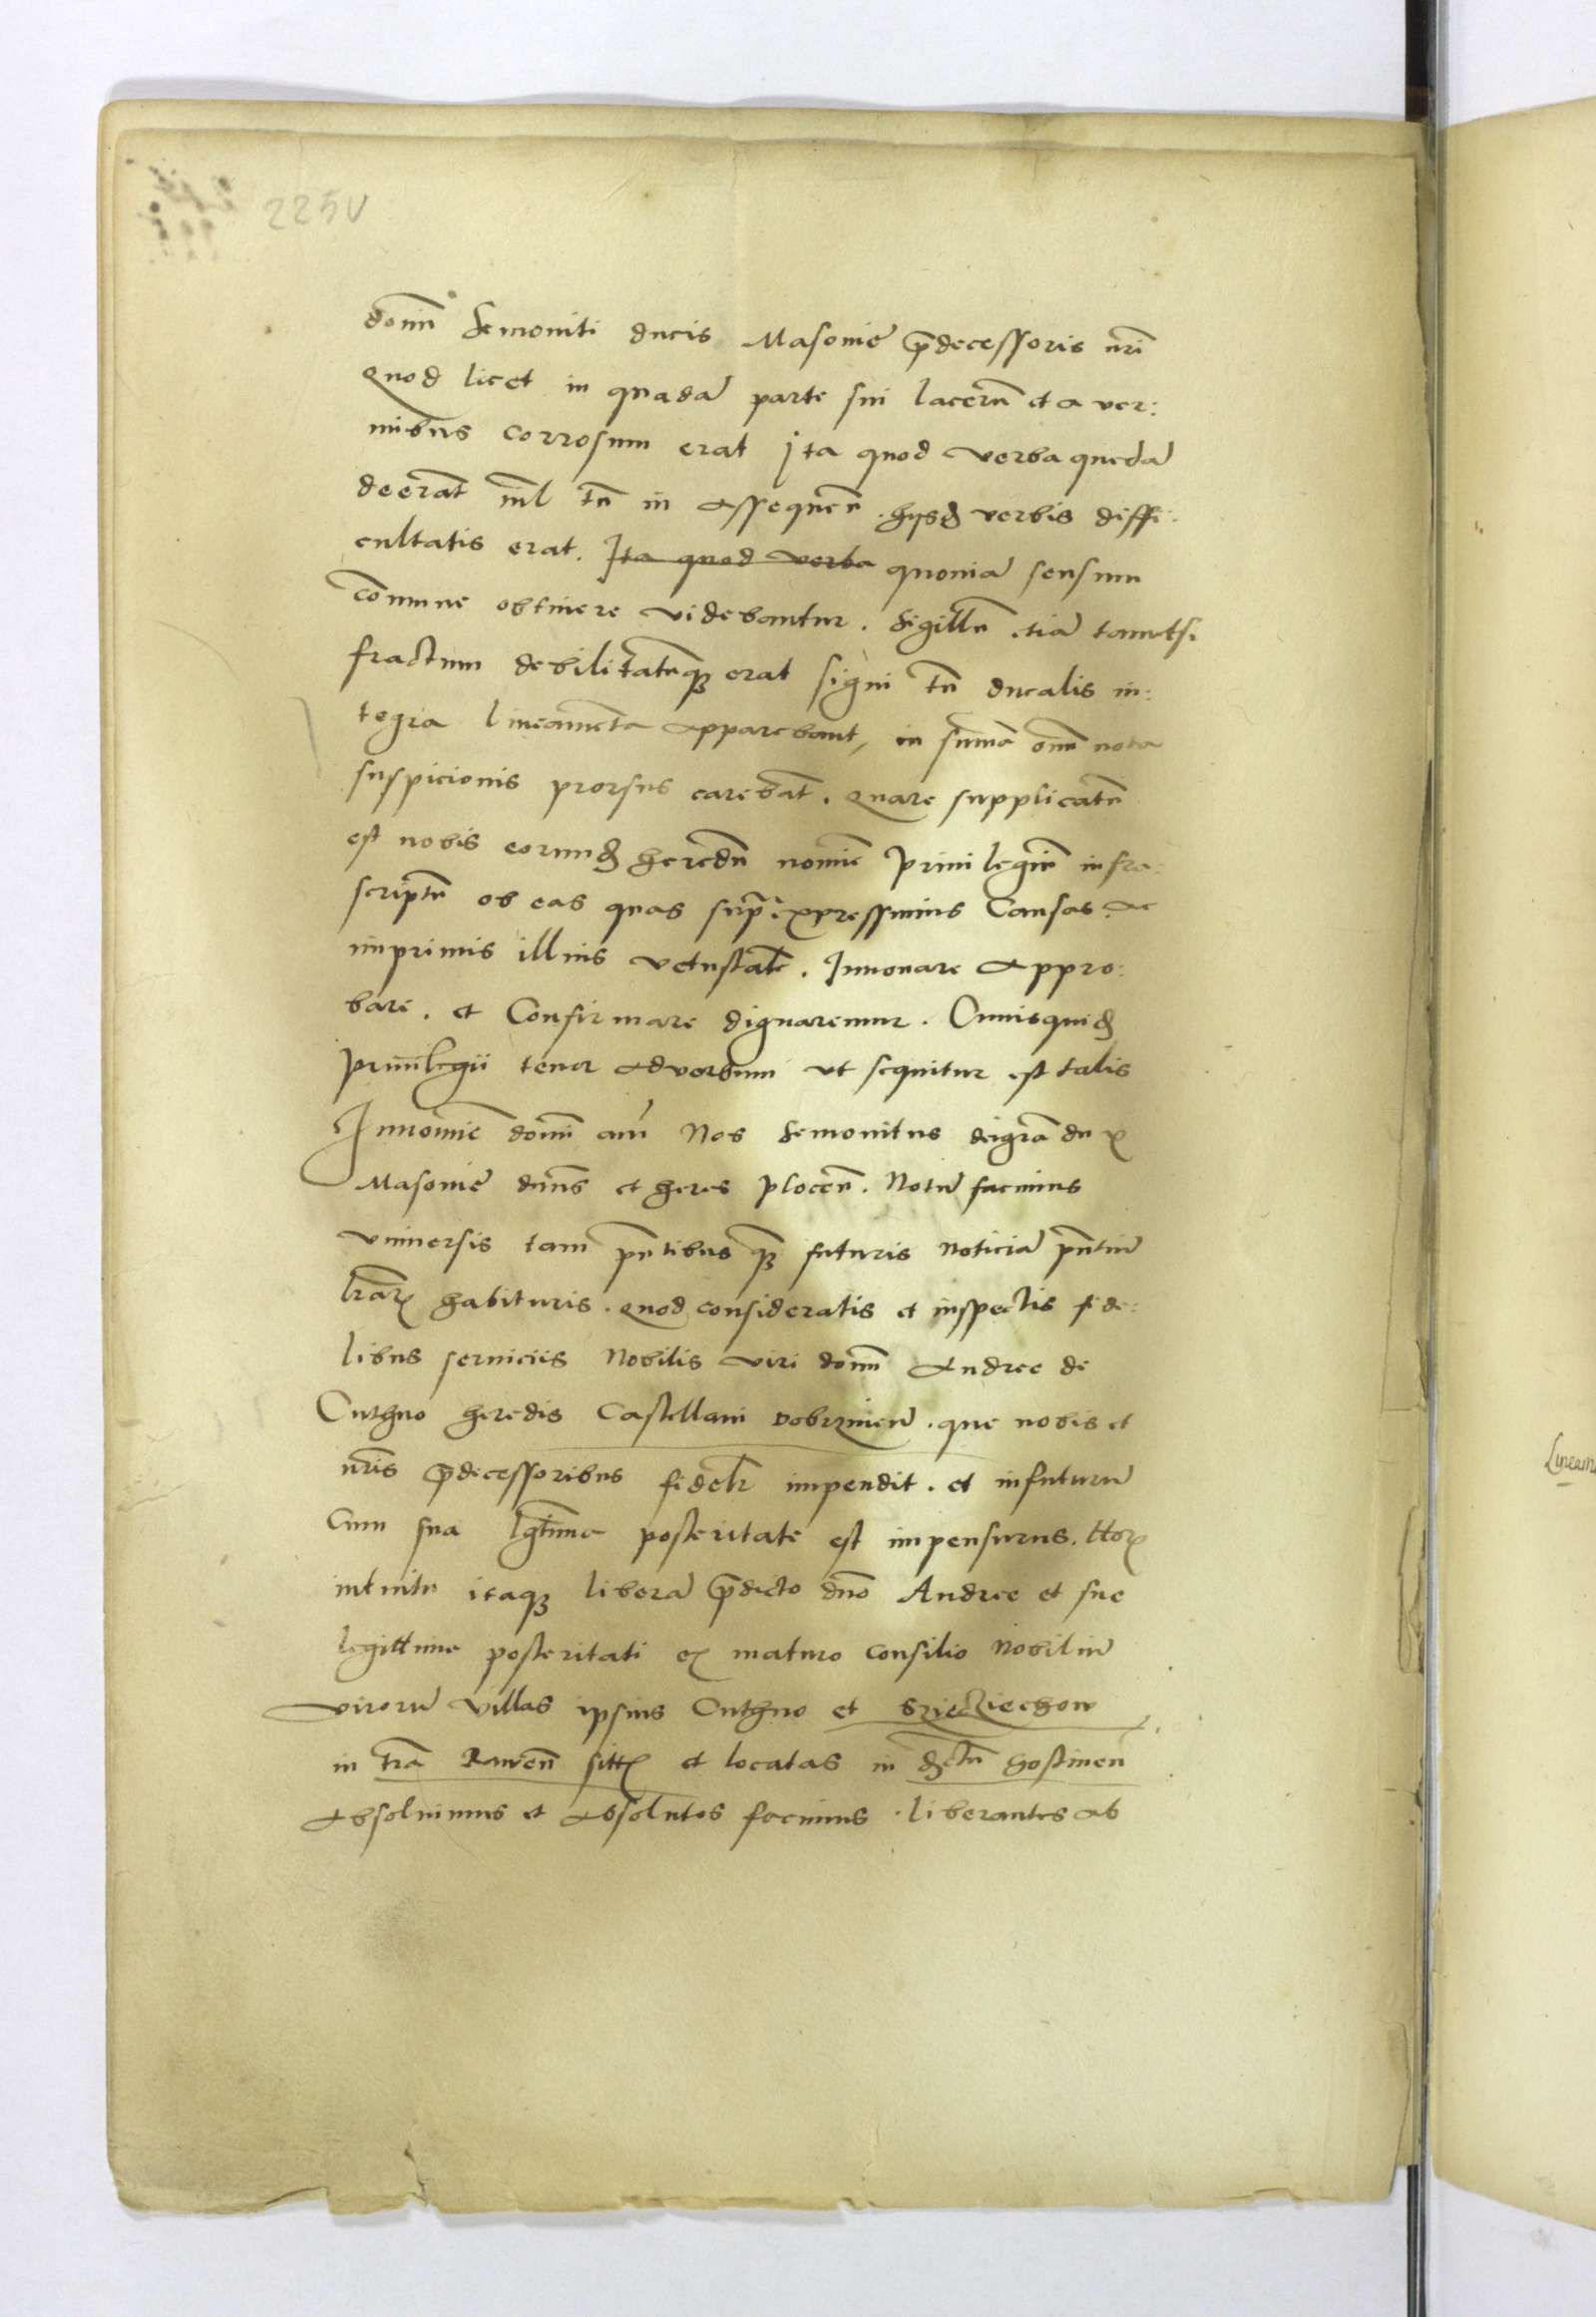 225v
domī Semouiti ducis Masouiē p̄decessoris nr̄i
Quod licet in quadā parte sui lacerū et a ver:
mibus corrosum erat ita quod verba quedā
deerāt nīl tn̄ in assequen̄ hysd̄ verbis diffi:
cultatis erat. Ita quod verba quoniā sensum
com̄une obtinere videbantur. Sigillū etiā tametsi
fractum debilitatūq3 erat signi tn̄ ducalis in:
tegra lineamēta apparebant, in sum̄a om̄i nota
suspicionis prorsus carebāt. Quare supplicatū
est nobis eorund̄ heredū nomīe priuilegiū infra:
scriptū ob eas quas supra expressimus Causas ac
imprimis illius vetustatē. Innouare appro:
bare. et Confirmare dignaremur. Cuiusquid̄
priuilegii tenor ad verbum vt sequitur est talis
Innomīe domī am̄ Nos Semouitus dei gr̄a dux
Masouiē dn̄us et heres plocen̄. Notū facimus
vniuersis tam pn̄tibus q3 futuris noticiā pn̄tiū
lr̄arꝝ habituris. quod consideratis et inspectis fide:
libus seruiciis Nobilis viri domī Andree de
Cuthno heredis Castellani dobrzinen̄. que nobis et
nr̄is p̄decessoribus fidelr̄ impendit. et infuturū
Cum sua lgt̄ima posteritate est impensurus. Horꝝ
intuitu itaq3 liberā p̄dicto dn̄o Andree et sue
legittime posteritati ex maturo consilio Nobiliū
virorū villas ipsius Cuthno et Sziecziechow
in tr̄a Rawen̄ sitt̄ et locatas in d̄ctū gostinen̄
absoluimus et absolutos facimus. liberantes ab